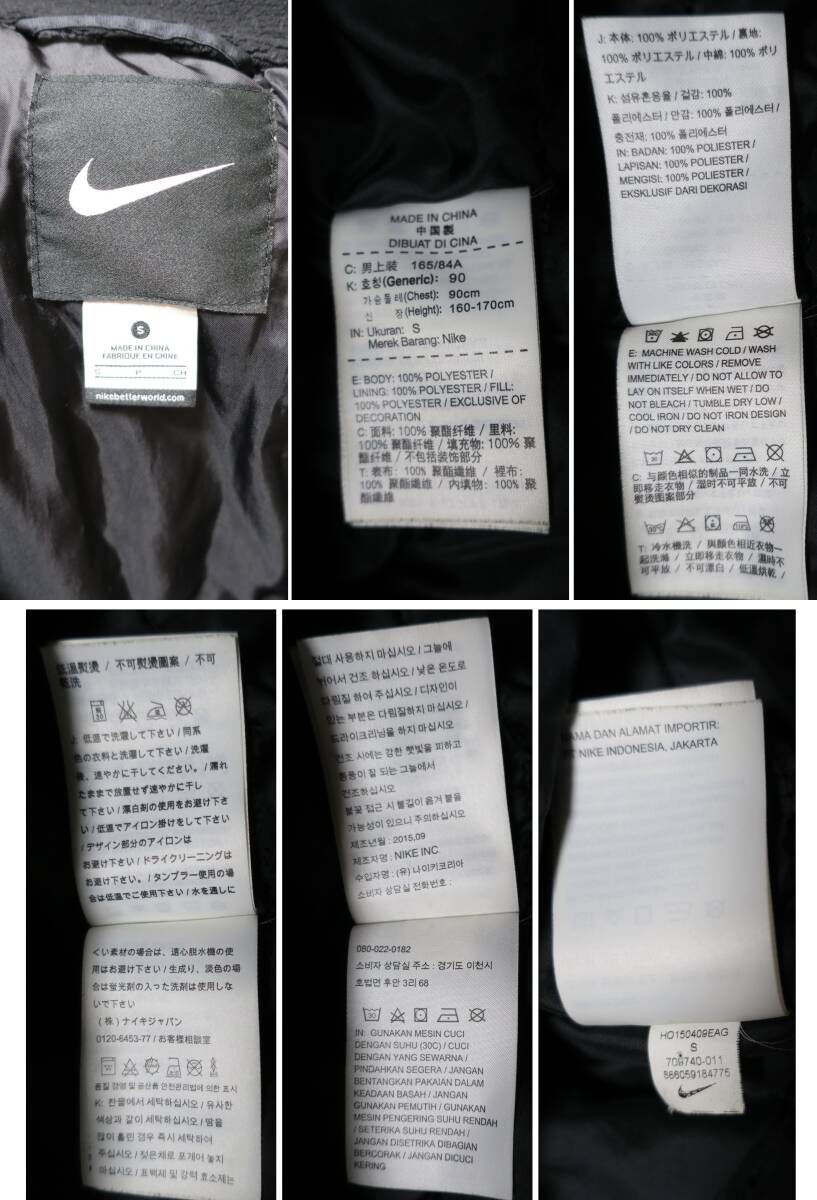 S
MADE IN CHINA
FABRIQUE EN CHINE
S P CH
nikebetterworld.com
MADE IN CHINA
中国製
DIBUAT DI CINA
C: 男上装 165/84A
K: 호칭(Generic): 90
가슴둘레(Chest): 90cm
신 장(Height): 160-170cm
IN: Ukuran: S
Merek Barang: Nike
E: BODY: 100% POLYESTER /
LINING: 100% POLYESTER / FILL:
100% POLYESTER / EXCLUSIVE OF
DECORATION
C: 面料: 100% 聚酯纤维 / 里料:
100% 聚酯纤维 / 填充物: 100% 聚
酯纤维 / 不包括装饰部分
T: 表布: 100% 聚酯纖維 / 裡布:
100% 聚酯纖維 / 內填物: 100% 聚
酯纖維
J: 本体: 100% ポリエステル / 裏地:
100% ポリエステル / 中綿: 100% ポリ
エステル
K: 섬유혼용율 / 겉감: 100%
폴리에스터 / 안감: 100% 폴리에스터 /
충전재: 100% 폴리에스터
IN: BADAN: 100% POLIESTER /
LAPISAN: 100% POLIESTER /
MENGISI: 100% POLIESTER /
EKSKLUSIF DARI DEKORASI
E: MACHINE WASH COLD / WASH
WITH LIKE COLORS / REMOVE
IMMEDIATELY / DO NOT ALLOW TO
LAY ON ITSELF WHEN WET / DO
NOT BLEACH / TUMBLE DRY LOW /
COOL IRON / DO NOT IRON DESIGN
/ DO NOT DRY CLEAN
C: 与颜色相似的制品一同水洗 / 立
即移走衣物 / 湿时不可平放 / 不可
熨烫图案部分
T: 冷水機洗 / 與顏色相近衣物一
起洗滌 / 立即移走衣物 / 濕時不
可平放 / 不可漂白 / 低溫烘乾 /
低溫熨燙 / 不可熨燙圖案 / 不可
乾洗
J: 低温で洗濯して下さい / 同系
色の衣料と洗濯して下さい / 洗濯
後、速やかに干してください。/ 濡れ
たままで放置せず速やかに干し
て下さい / 漂白剤の使用をお避け下さ
い / 低温でアイロン掛けをして下さい
/ デザイン部分のアイロンは
お避け下さい / ドライクリーニングは
お避け下さい。/ タンブラー使用の場
合は低温でご使用下さい / 水を通しに
くい素材の場合は、遠心脱水機の使
用はお避け下さい / 生成り、淡色の場
合は蛍光剤の入った洗剤は使用しな
いで下さい
(株) ナイキジャパン
0120-6453-77 / お客様相談室
품질 경영 및 공산품 안전관리법에 의한 표시
K: 찬물에서 세탁하십시오 / 유사한
색상과 같이 세탁하십시오 / 땀을
많이 흘린 경우 즉시 세탁하여
주십시오 / 젖은채로 포개어 놓지
마십시오 / 표백제 및 강력 효소제는
절대 사용하지 마십시오 / 그늘에
뉘어서 건조 하십시오 / 낮은 온도로
다림질 하여 주십시오 / 디자인이
있는 부분은 다림질하지 마십시오 /
드라이크리닝을 하지 마십시오
건조 시에는 강한 햇빛을 피하고
통풍이 잘 되는 그늘에서
건조하십시오
불꽃 접근 시 불길이 옮겨 붙을
가능성이 있으니 주의하십시오
제조년월 : 2015,09
제조자명 : NIKE INC
수입자명 : (유) 나이키코리아
소비자 상담실 전화번호 :
080-022-0182
소비자 상담실 주소 : 경기도 이천시
호법면 후안 3리 68
IN: GUNAKAN MESIN CUCI
DENGAN SUHU (30C) / CUCI
DENGAN YANG SEWARNA /
PINDAHKAN SEGERA / JANGAN
BENTANGKAN PAKAIAN DALAM
KEADAAN BASAH / JANGAN
GUNAKAN PEMUTIH / GUNAKAN
MESIN PENGERING SUHU RENDAH
/ SETERIKA SUHU RENDAH /
JANGAN DISETRIKA DIBAGIAN
BERCORAK / JANGAN DICUCI
KERING
NAMA DAN ALAMAT IMPORTIR:
PT NIKE INDONESIA, JAKARTA
HO150409EAG
S
709740-011
886059184775